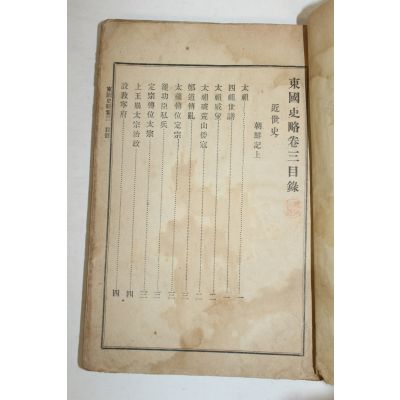 東國史略卷三目錄
近世史
朝鮮記上
太祖 一
四祖世譜 一
太祖威望 一
太祖破荒山倭寇 二
鄭道傳亂 三
太祖傳位定宗 三
罷功臣私兵 三
定宗傳位太宗 三
上王屬太宗治政 四
設敦寧府 四
東國史略卷三 目錄